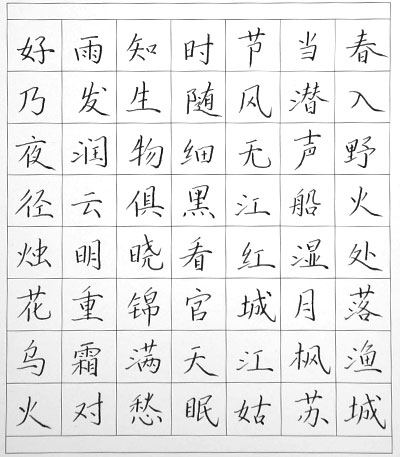 好雨知时节当春
乃发生随风潜入
夜润物细无声野
径云俱黑江船火
烛明晓看红湿处
花重锦官城月落
乌霜满天江枫渔
火对愁眠姑苏城